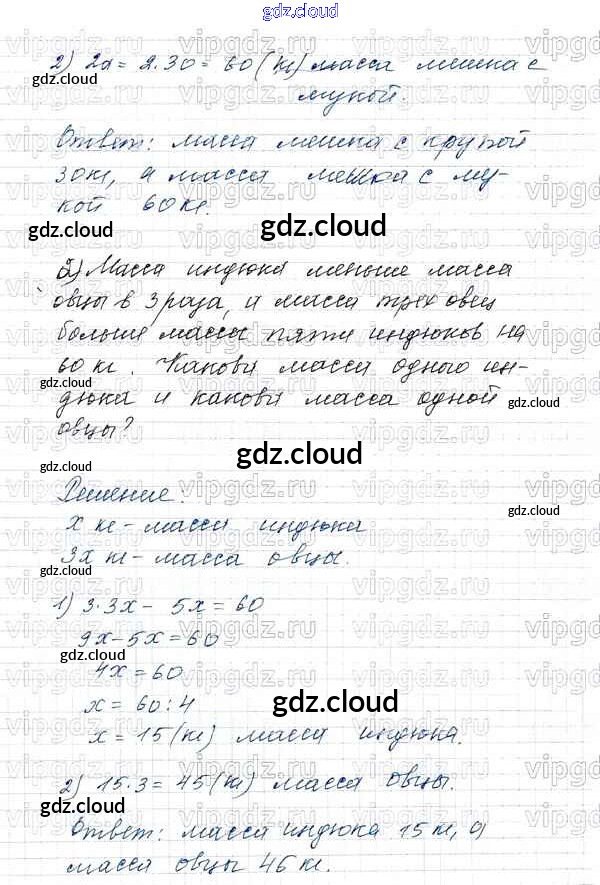 gdz.cloud
2) 2a = 2.30 = 60 (кг) масса мешка с
gdz.cloud
мукой.
Ответ: масса мешка с крупой
30 кг, а масса мешка с му-
кой 60 кг.
gdz.cloud
gdz.cloud
2) Масса индюка меньше масса
овцы в 3 раза, а масса трех овец
больше массы пяти индюков на
60 кг. Какова масса одного ин-
gdz.cloud
дюка и какова масса одной
gdz.cloud
овцы?
gdz.cloud
gdz.cloud
Решение:
х кг - масса индюка
gdz.cloud
3х кг - масса овцы.
gdz.cloud
1) 3.3х - 5х = 60
9х - 5х = 60
gdz.cloud
4х = 60
х = 60 : 4
gdz.cloud
х = 15 (кг) масса индюка.
2) 15.3 = 45 (кг) масса овцы.
gdz.cloud
Ответ: масса индюка 15 кг, а
gdz.cloud
масса овцы 46 кг.
vipgdz.ru